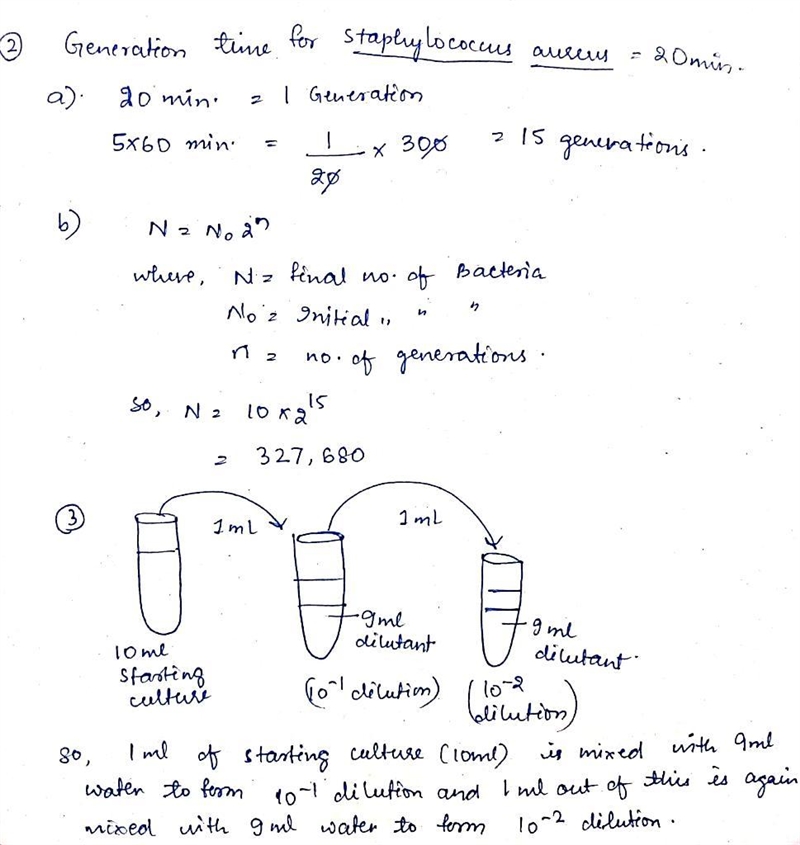 ② Generation time for Staphylococcus aureus = 20min.
a). 20 min. = 1 Generation
5×60 min. = 1/20 × 300 = 15 generations.
b) N = N₀ 2ⁿ
where, N = final no. of Bacteria
N₀ = Initial " " "
n = no. of generations.
so, N = 10 × 2¹⁵
= 327,680
③ 1mL 1mL
10ml starting culture
9ml dilutant
(10⁻¹ dilution)
9ml dilutant.
(10⁻² dilution)
so, 1ml of starting culture (10ml) is mixed with 9ml
water to form 10⁻¹ dilution and 1ml out of this is again
mixed with 9ml water to form 10⁻² dilution.